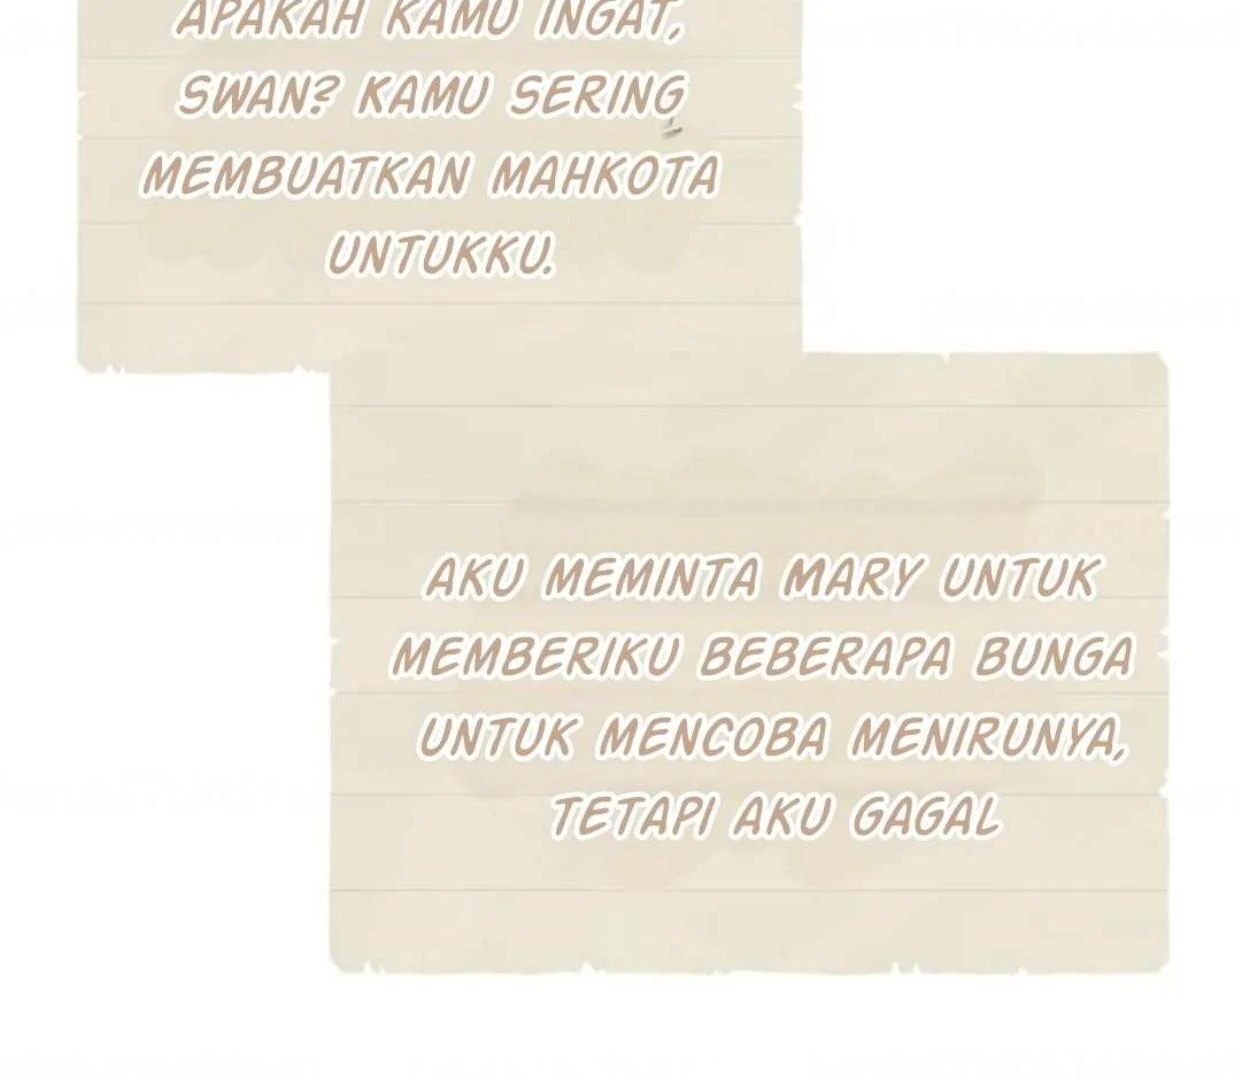 APAKAH KAMU INGAT,
SWAN? KAMU SERING
MEMBUATKAN MAHKOTA
UNTUKKU.
AKU MEMINTA MARY UNTUK
MEMBERIKU BEBERAPA BUNGA
UNTUK MENCOBA MENIRUNYA,
TETAPI AKU GAGAL